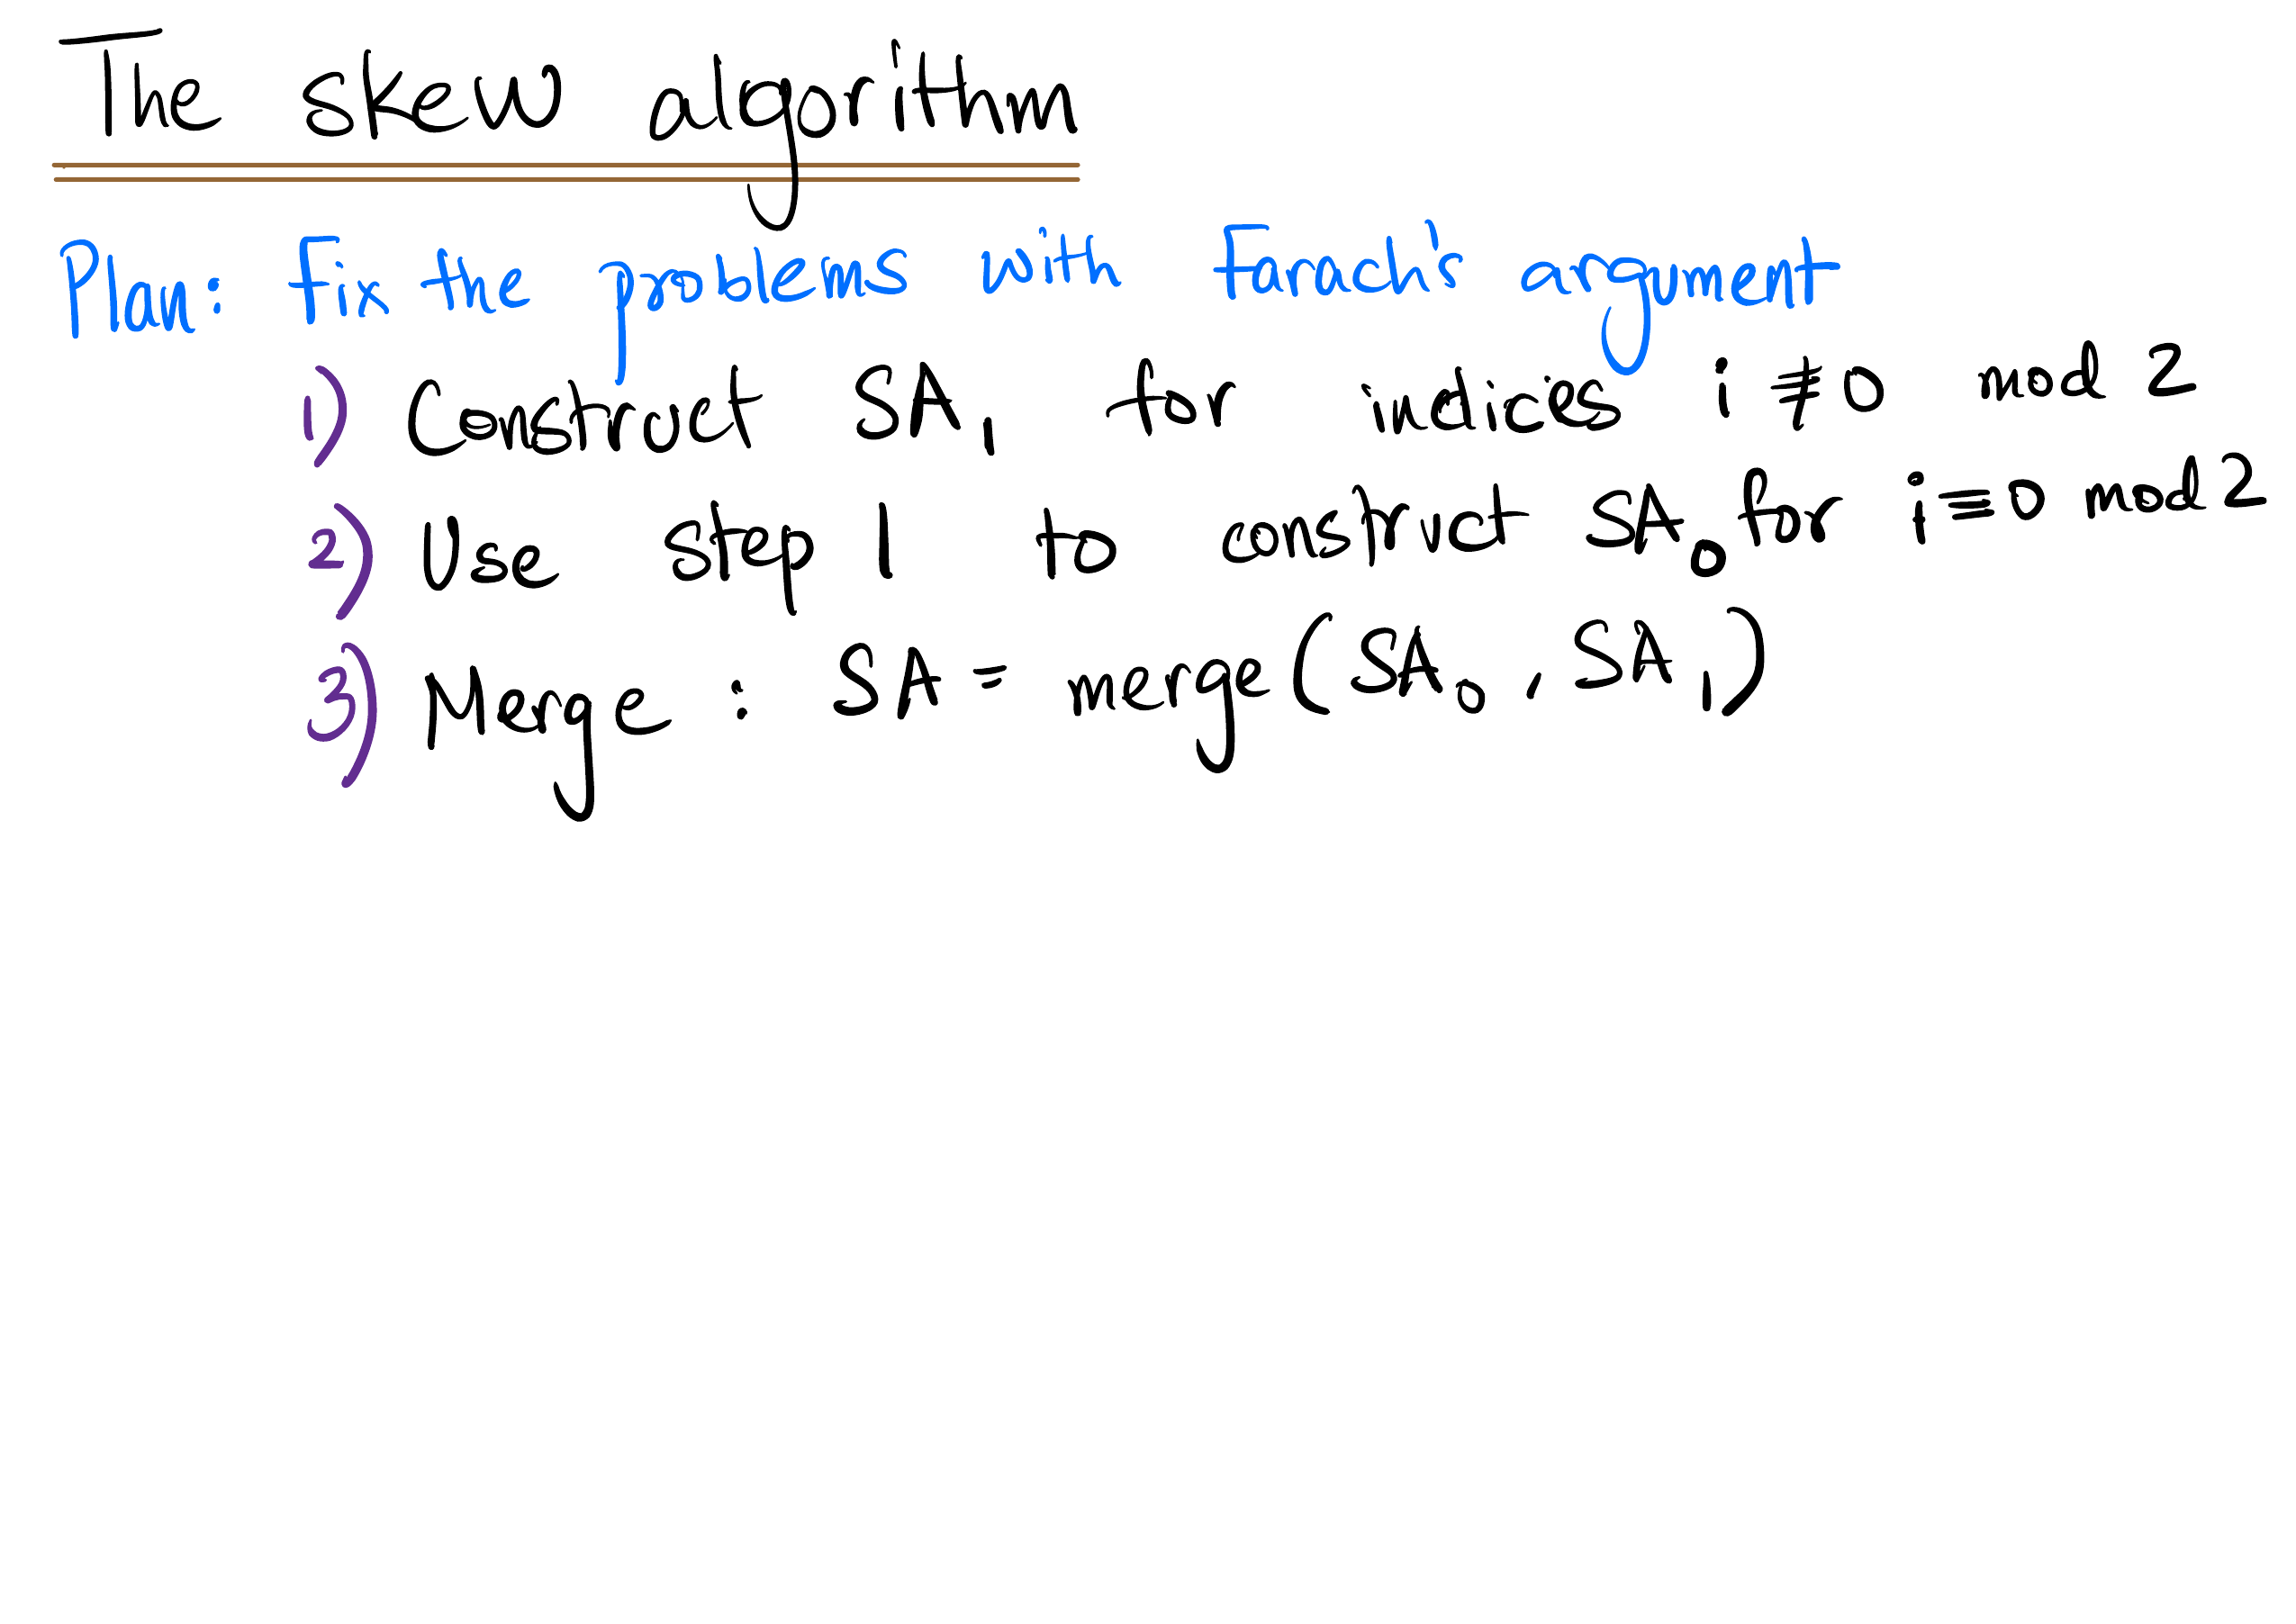 The skew algorithm
Plan: Fix the problems with Farach's argument
1) Construct SA₁ for indices i ≢ 0 mod 2
2) Use step 1 to construct SA₀ for i ≡ 0 mod 2
3) Merge : SA = merge(SA₀, SA₁)